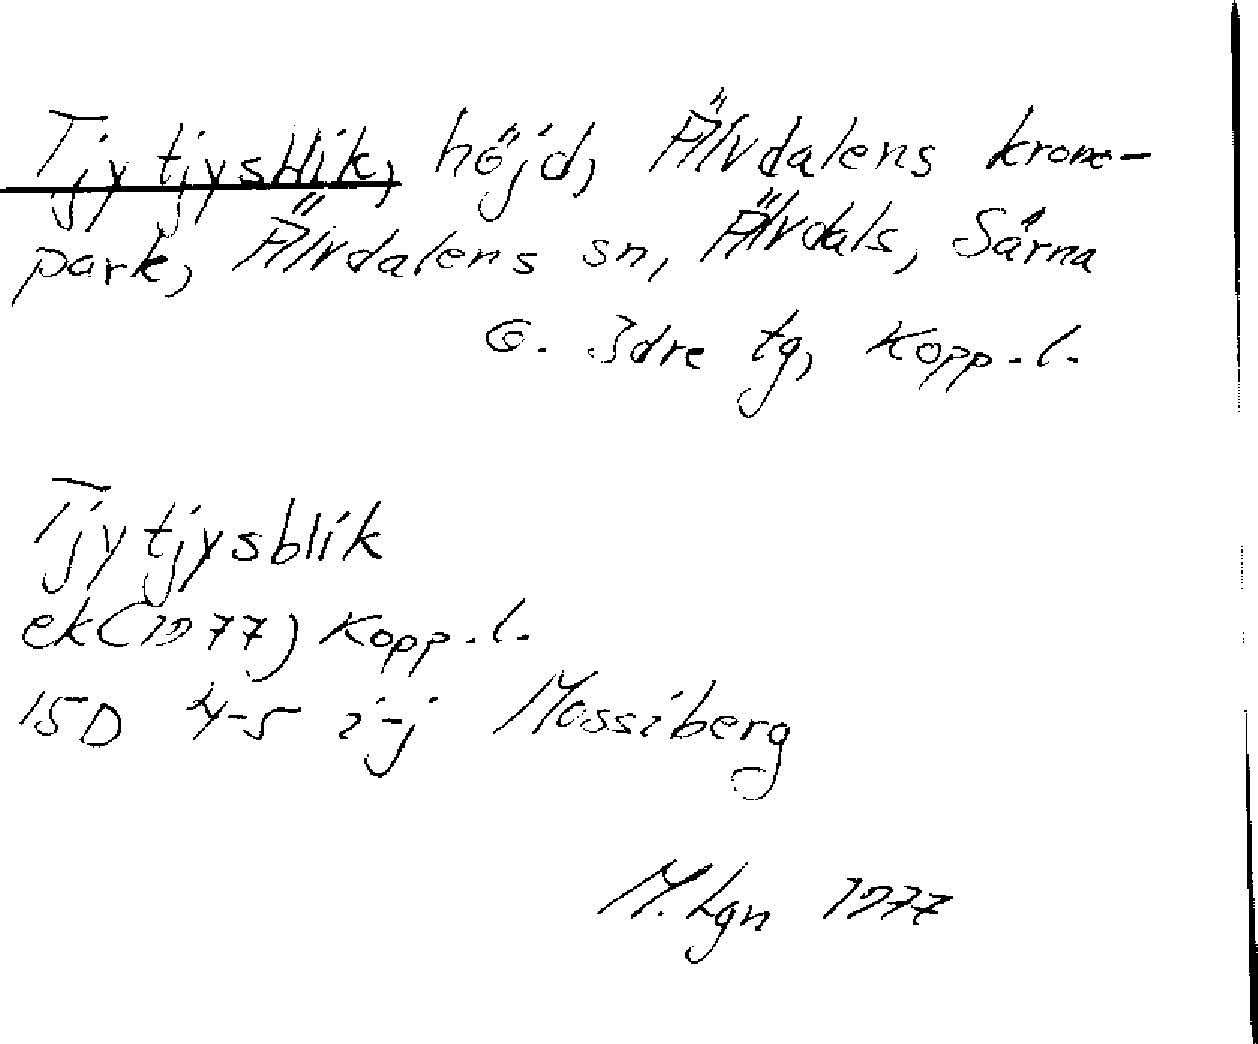 Tjytjysblik, höjd, Älvdalens krono-
park, Älvdalens sn, Älvdals, Särna
o. Idre tg, Kopp.l.
Tjytjysblik
ek (1977) Kopp.l.
15D 4-5 i-j Mossiberg
M.Lgn 1977